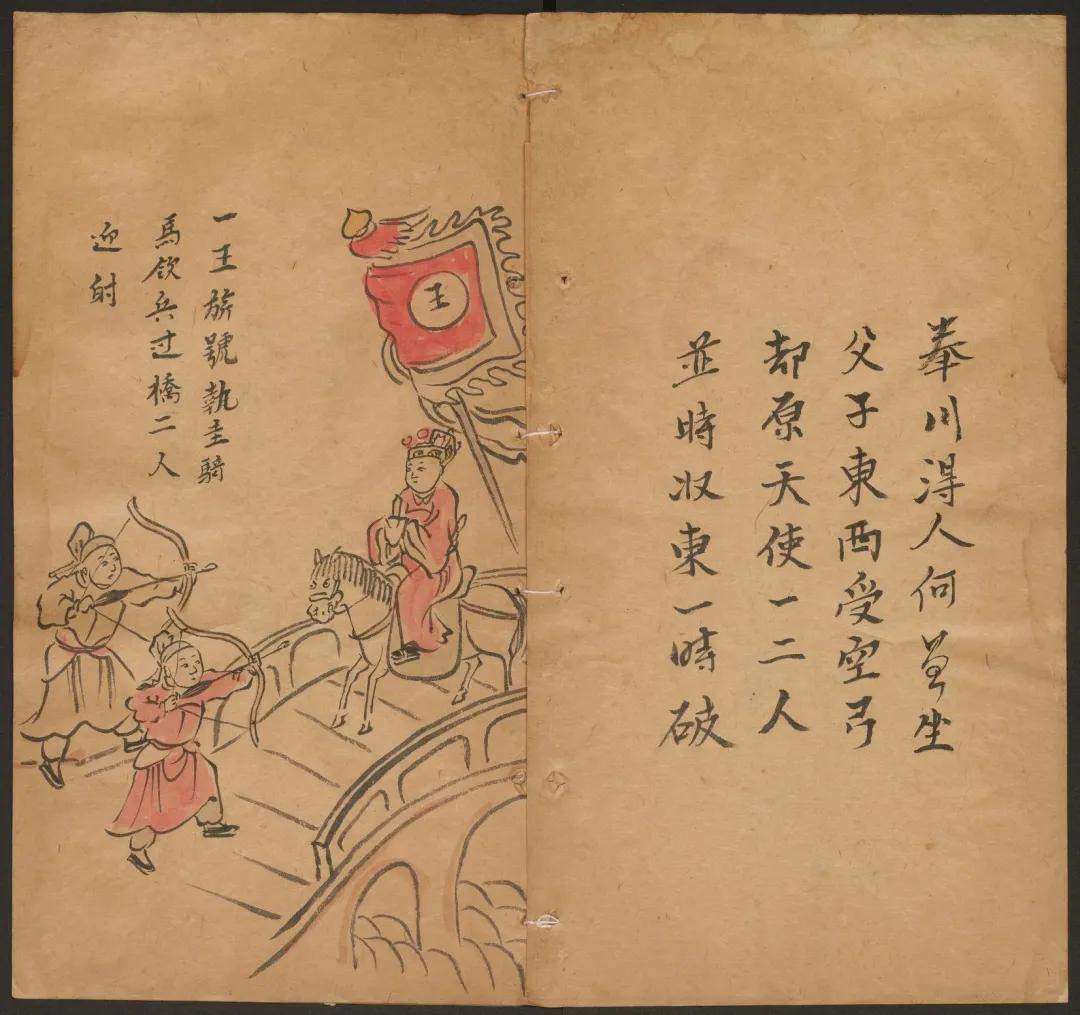 奉川得人何㝵坐
父子東西受空弓
却原天使一二人
並時収東一時破
一王旂號執圭騎
馬飲兵过橋二人
迎射
王